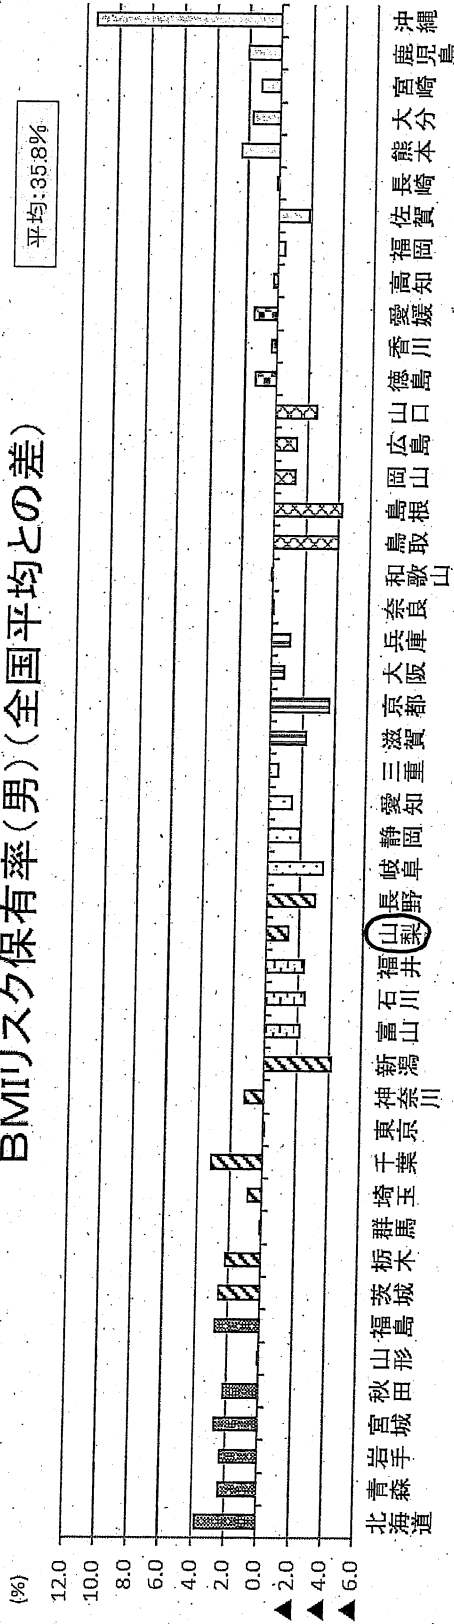 BMIリスク保有率(男)(全国平均との差)
平均:35.8%
(%)
12.0
10.0
8.0
6.0
4.0
2.0
0.0
▲ 2.0
▲ 4.0
▲ 6.0
北海道
青森
岩手
宮城
秋田
山形
福島
茨城
栃木
群馬
埼玉
千葉
東京
神奈川
新潟
富山
石川
福井
山梨
長野
岐阜
静岡
愛知
三重
滋賀
京都
大阪
兵庫
奈良
和歌山
鳥取
島根
岡山
広島
山口
徳島
香川
愛媛
高知
福岡
佐賀
長崎
熊本
大分
宮崎
鹿児島
沖縄